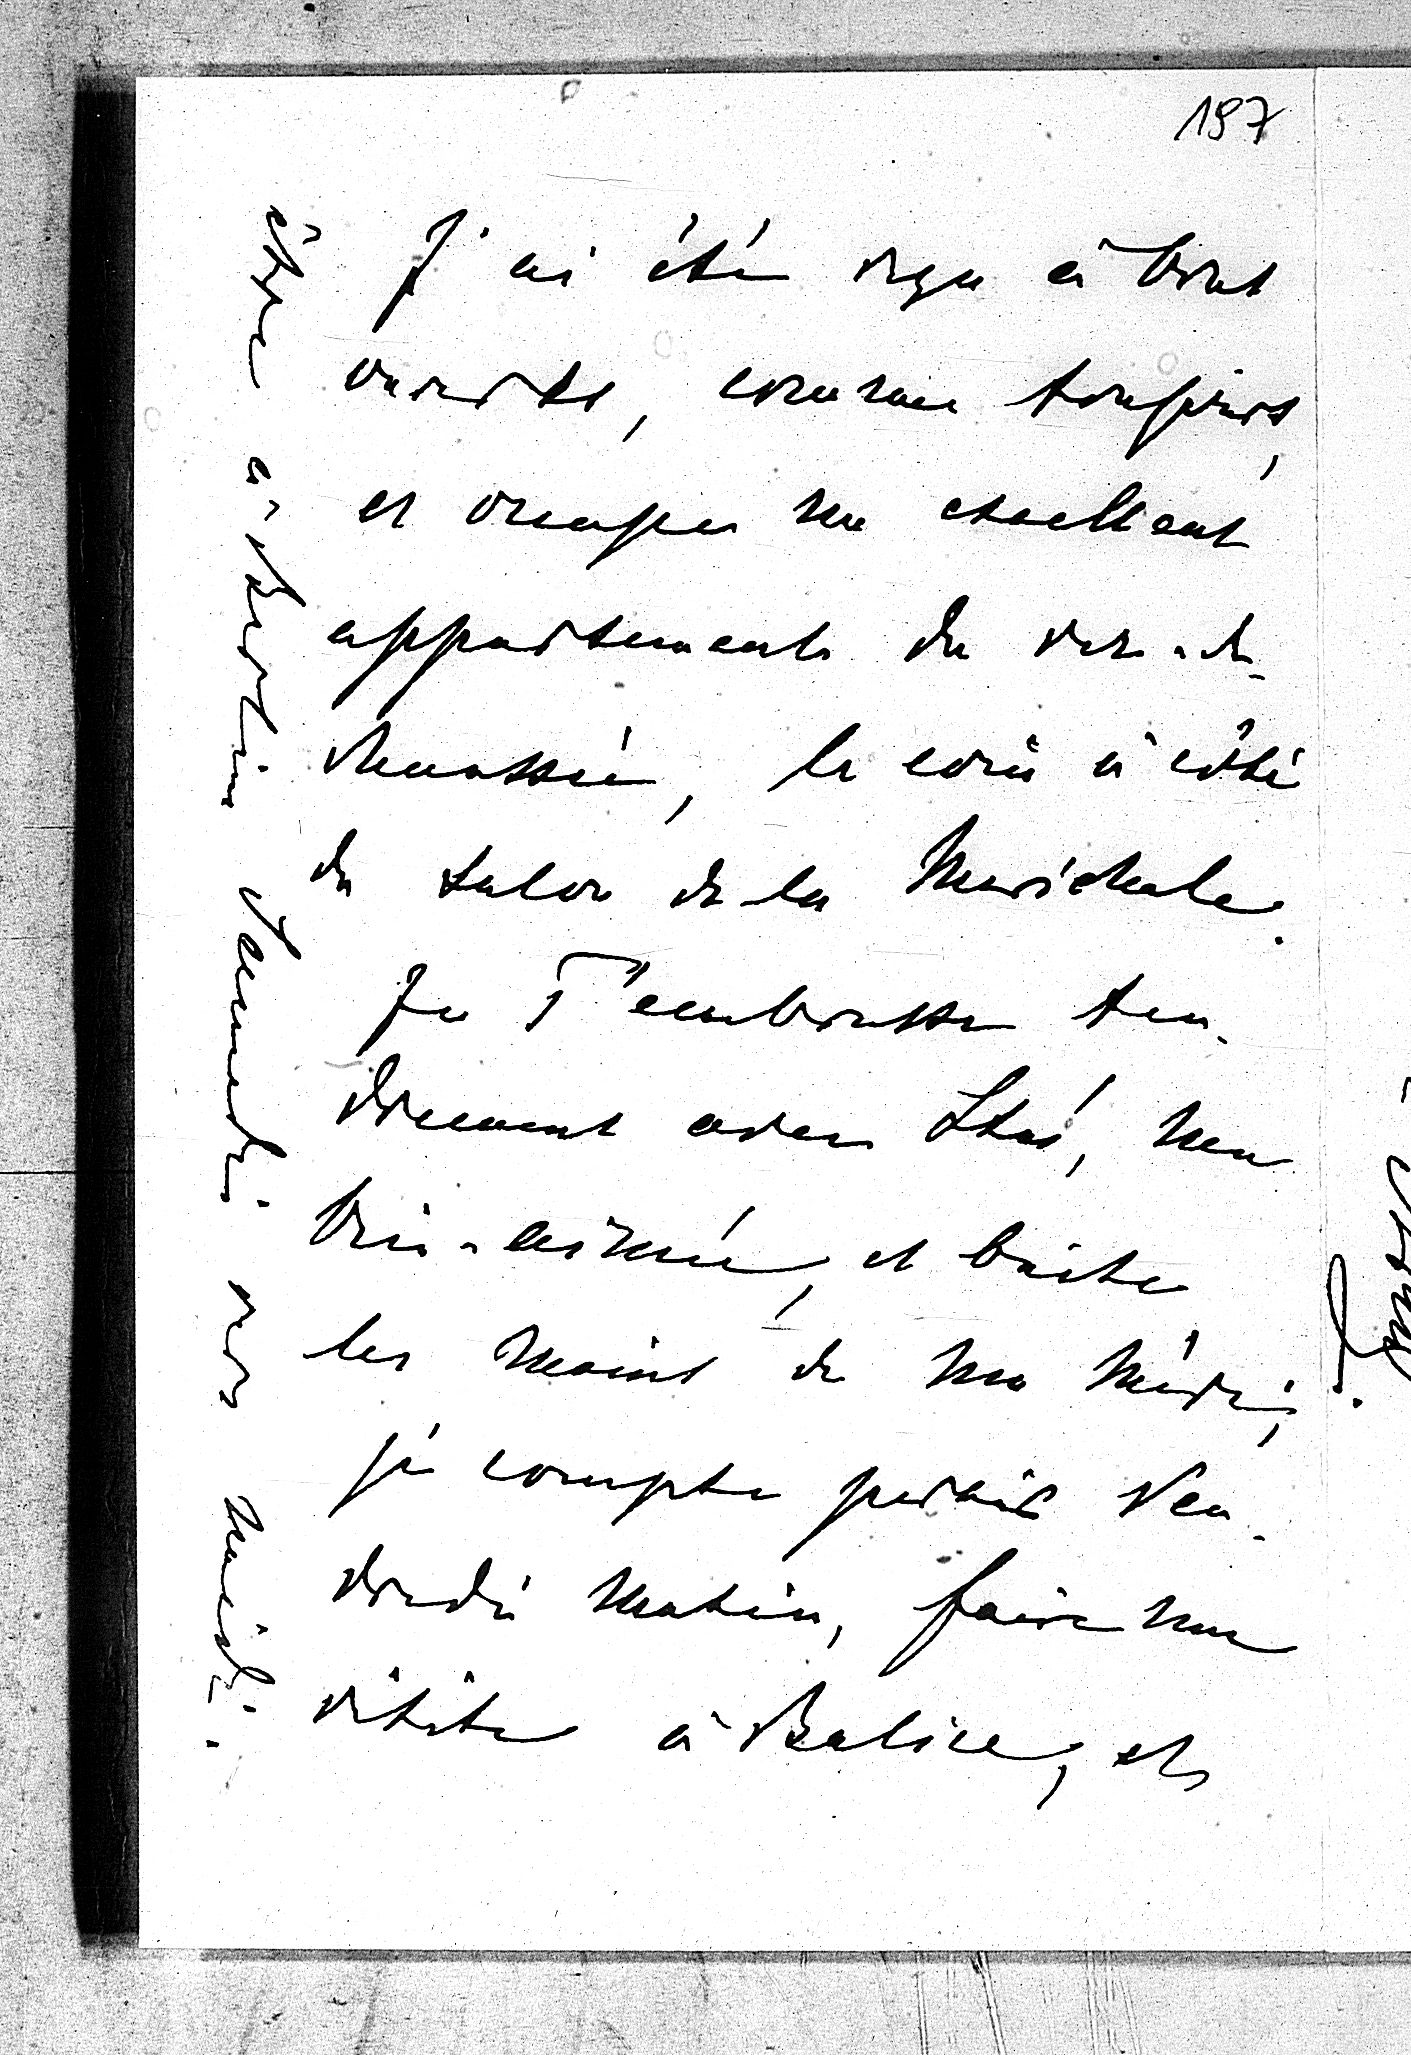 197
J'ai été reçu à bras
ouverts, comme toujours,
et occupe un excellent
appartement du rez-de-
chaussée, le coin à côté
du salon de la Maréchale.
Je T'embrasse ten-
drement avec Staś, ma
bien-aimée, et baise
les mains de ma Mère;
je compte partir Ven-
dredi matin, faire une
visite à Balice, et
être à Berlin Samedi vers midi.